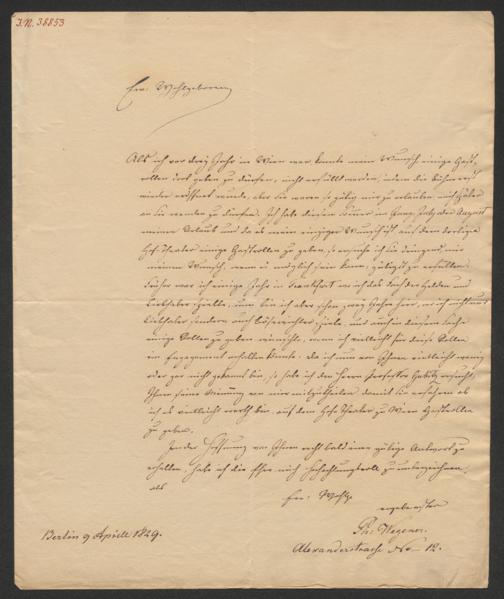 I.N. 38853
Ew. Wohlgeboren
Als ich vor drey Jahr in Wien war, konnte mein Wunsch einige Gast-
rollen dort geben zu dürfen, nicht erfüllt werden, indem die Bühne erst
wieder eröffnet wurde, aber Sie waren so gütig mir zu erlauben mich später
an Sie wenden zu dürfen. Ich habe diesen Sommer im Juny, July oder August
meinen Urlaub und da es mein einziger Wunsch ist auf dem dortigen
Hof-Theater einige Gastrollen zu geben, so ersuche ich Sie
meinen Wunsch, wenn es möglich sein kann, gütigst zu erfüllen.
Früher war ich einige Jahr in Frankfurt wo ich das Fach der Helden und
Liebhaber spielte, nun bin ich aber schon zwey Jahre hier, wo ich nicht nur
Liebhaber sondern auch spiele, und auch in diesem Fache
einige Rollen zu geben wünschte, wenn ich vielleicht für diese Rollen
ein Engagement erhalten könnte. Da ich nun von Ihnen vielleicht wenig
oder gar nicht gekannt bin, so habe ich den Herrn Professor Gubitz ersucht,
Ihnen seine Meinung von mir mitzutheilen damit Sie erfahren ob
ich es vielleicht werth bin, auf dem Hof-Theater zu Wien Gastrollen
zu geben.
In der Hoffnung von Ihnen recht bald eine gütige Antwort zu
erhalten, habe ich die Ehre mich hochachtungsvoll zu unterzeichnen,
als
Ew. Wohlg.
ergebenster
Ph: Wegener.
Alexanderstrasse No 12.
Berlin 9 Aprill 1829.